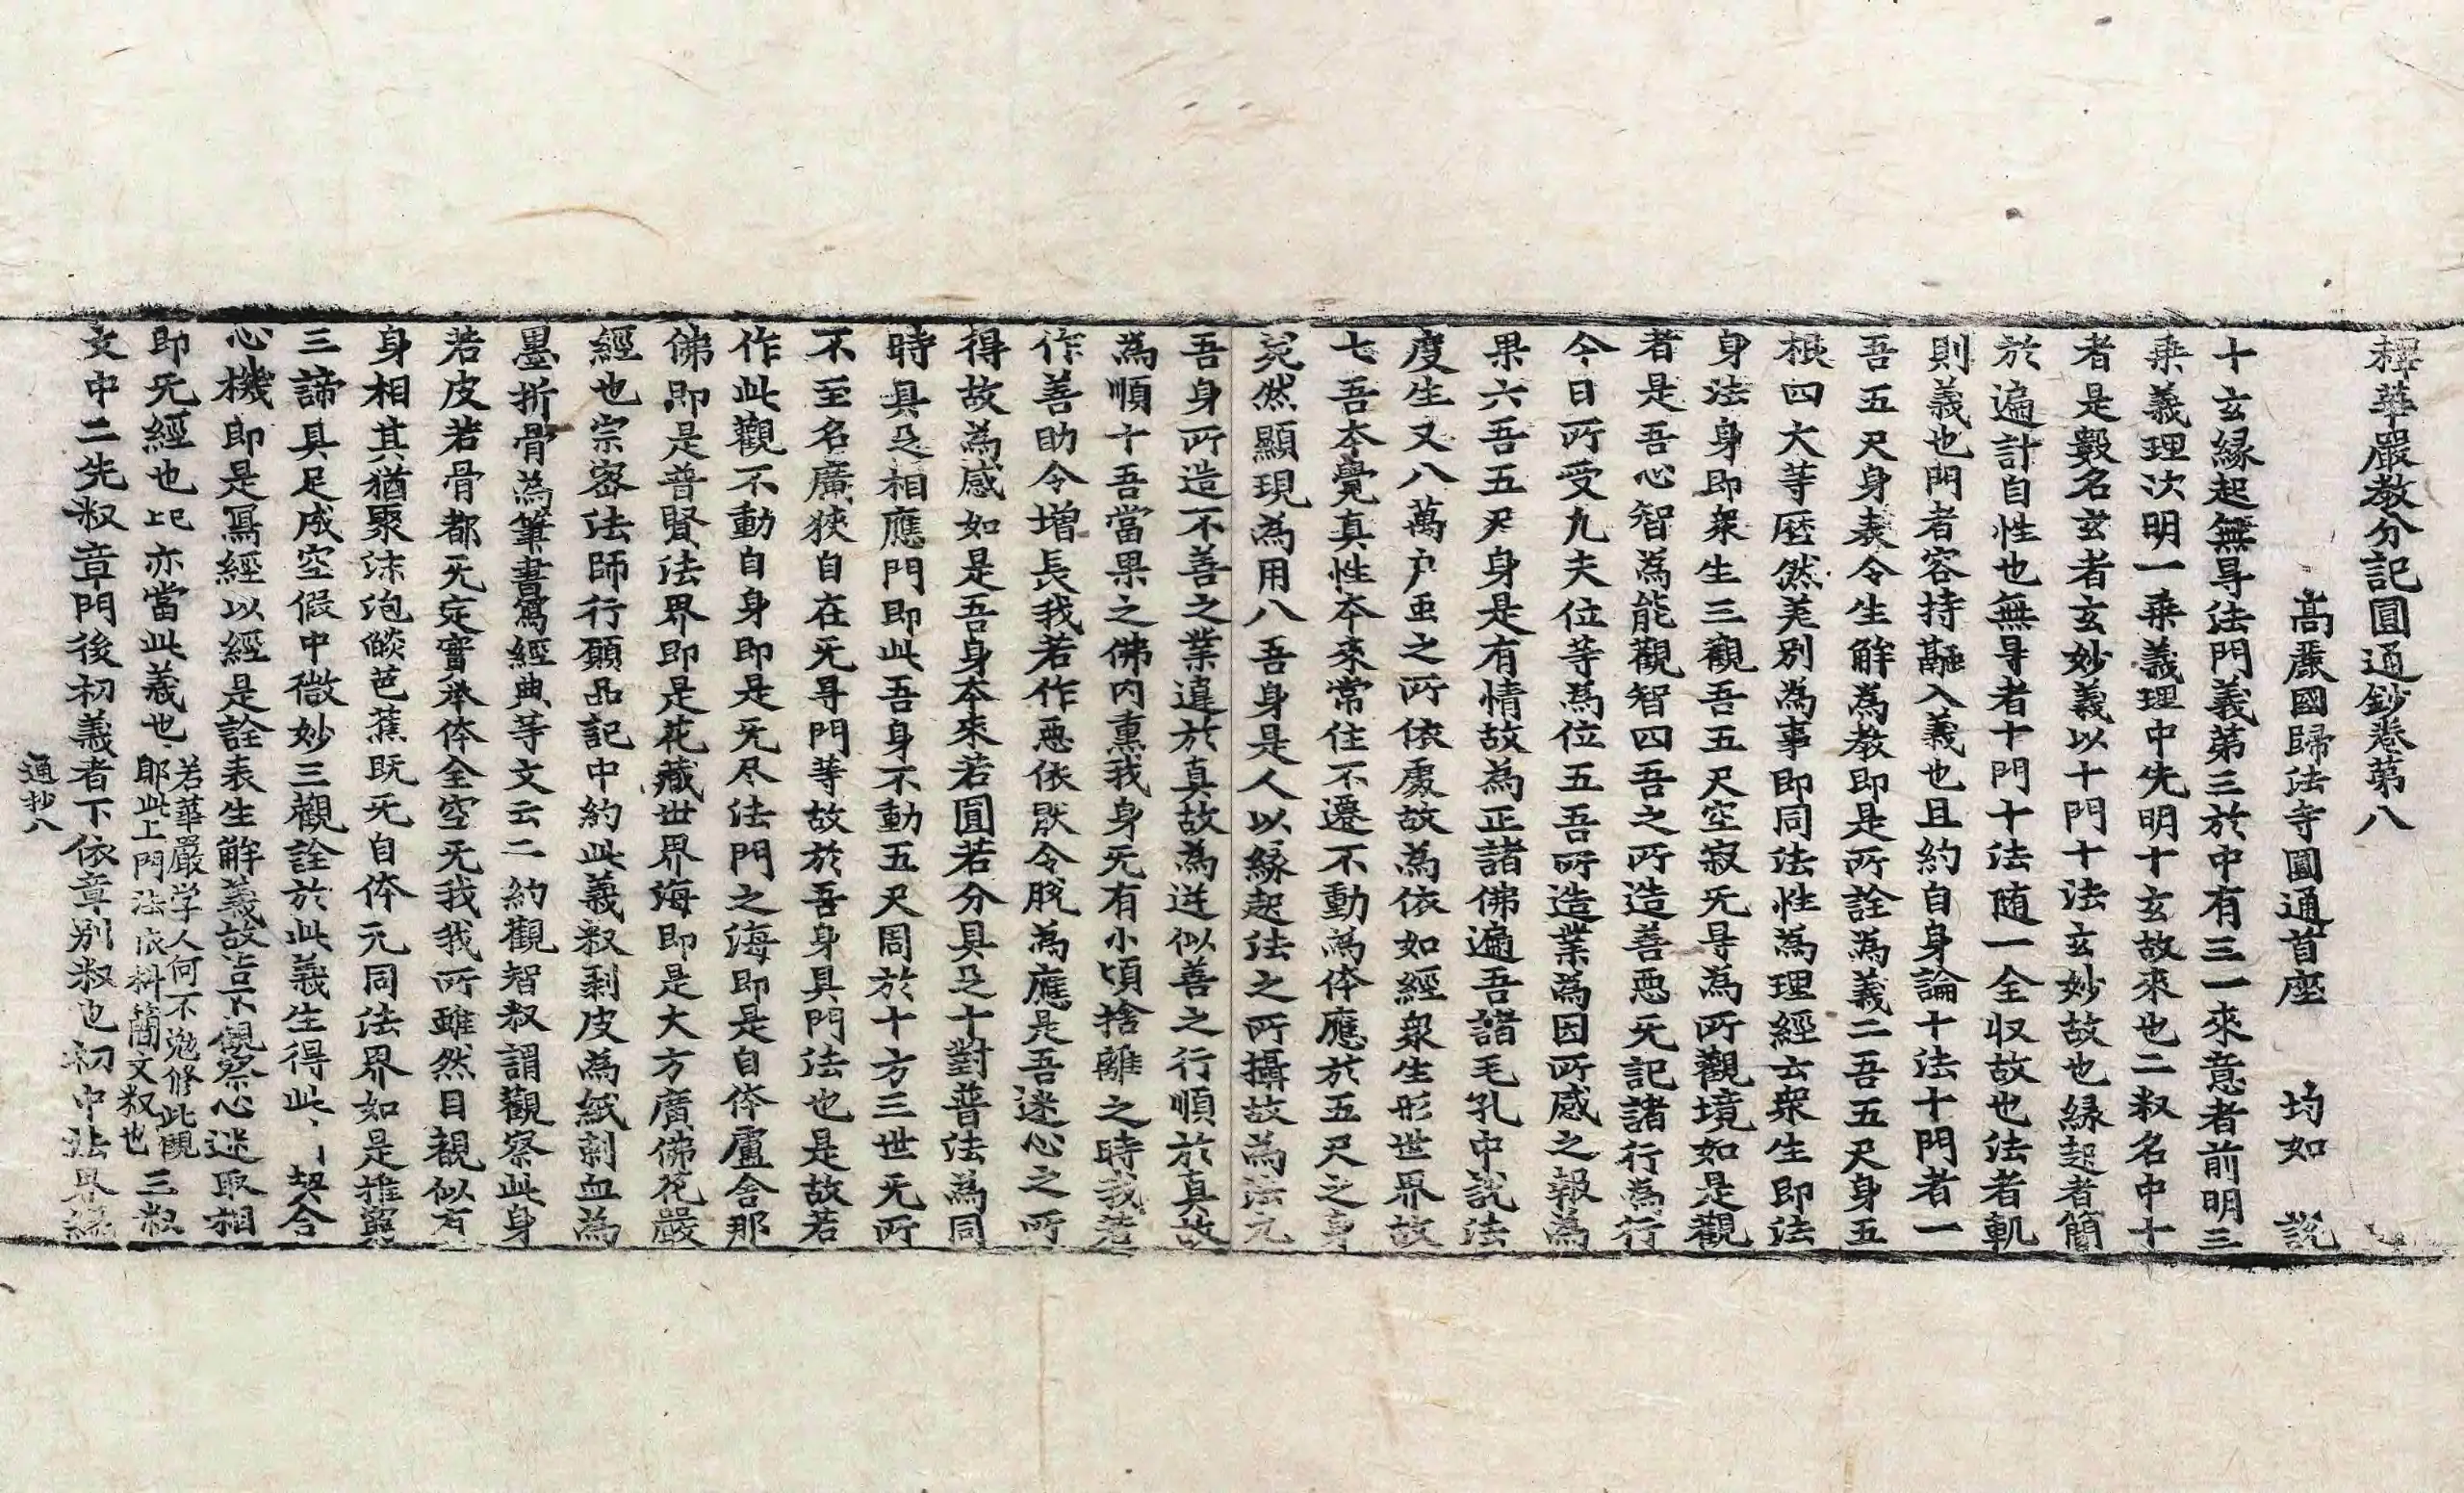 釋華嚴教分記圓通鈔卷第八
高麗國歸法寺圓通首座 均如 說
十玄緣起無㝵法門義第三於中有三一來意者前明三
乘義理次明一乘義理中先明十玄故來也二釈名中十
者是數名玄者玄妙義以十門十法玄妙故也緣起者簡
於遍計自性也無㝵者十門十法随一全収故也法者軌
則義也門者容持融入義也且約自身論十法十門者一
吾五尺身表令生解為教即是所詮為義二吾五尺身五
根四大等歷然差別為事即同法性為理經云衆生即法
身法身即衆生三觀吾五尺空寂无㝵為所觀境如是觀
者是吾心智為能觀智四吾之所造善惡旡記諸行為行
今日所受凡夫位等為位五吾所造業為因所感之報為
果六吾五尺身是有情故為正諸佛遍吾諸毛孔中說法
度生又八萬户虫之所依處故為依如經衆生形世界故
七吾本覺真性本來常住不遷不動為体應於五尺之身
宛然顯現為用八吾身是人以緣起法之所攝故為法九
吾身所造不善之業違於真故為逆似善之行順於真故
為順十吾當果之佛內熏我身旡有小頃捨離之時我若
作善助令增長我若作惡依厭令脫為應是吾迷心之所
得故為感如是吾身本來若圓若分具足十對普法為同
時具足相應門即此吾身不動五尺周於十方三世旡所
不至名廣狹自在旡㝵門等故於吾身具門法也是故若
作此觀不動自身即是旡尽法門之海即是自体盧舍那
佛即是普賢法界即是花藏世界海即是大方廣佛花嚴
經也宗密法師行願品記中約此義釈剥皮為紙刺血為
墨折骨為筆書寫經典等文云二約觀智釈謂觀察此身
若皮若骨都旡定實举体全空旡我我所雖然目覩似有
身相其猶聚沫泡燄芭蕉既旡自体元同法界如是推窮
三諦具足成空假中微妙三觀詮於此義生得此 契合
心機即是寫經以經是詮表生解義故豈不觀察心迷取相
即旡經也 亦當此義也 若華嚴学人何不勉修此觀
耶此上門法依科簡文釈也 三釈
文中二先釈章門後初義者下依章別釈也初中法界緣
通抄八